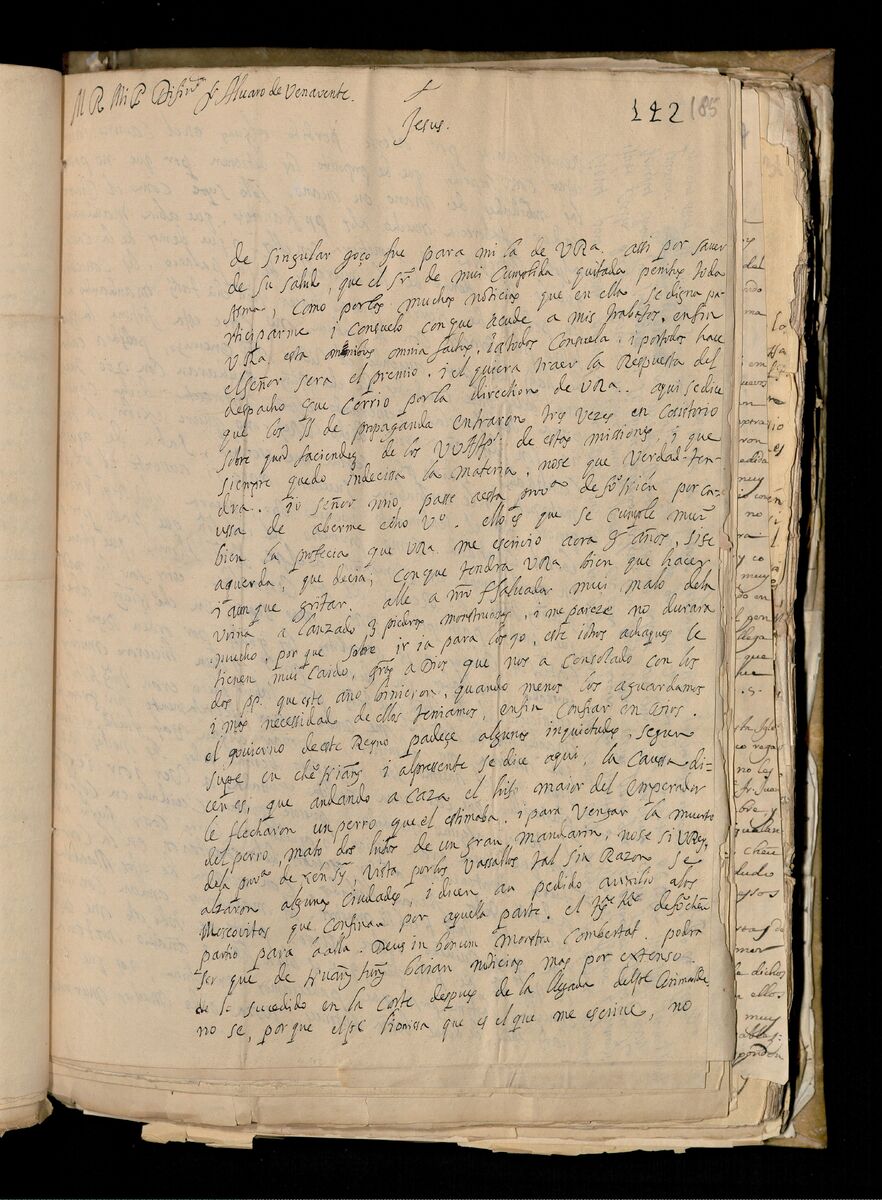 M R Mi P Difinor fr Alvaro de Venavente.
Jesus.
142 185
de singular goço fue para mi la de VRa. assi por saver
de su salud, que el sr. de mui Cumplida quitada penitus toda
Asma, como por las muchas noticias que en ella se digna pa-
rticiparme i Consuelo con que acude a mis trabajos, enfin
VRa esta omnibus omnia factus, i a todos Consuela. i por todos hace
el señor sera el premio. i el quiera traer la Respuesta del
despacho que Corrio por la direction de VRa. aqui se dice
que los SS de propaganda entraron tres vezes en Cositorio
sobre quod faciendum de los de estas missiones, i que
siempre quedo indecissa la materia, nose que verdad ten-
dra. io señor mio passe a esta provª de fo Kien por ca-
ussa de aberme echo Vº. ello es que se Cumple mui
bien la profecia que VRa me escrivio aora años, si se
aquerda, que decia; Conque tendra VRa bien que hacer
i aun que gritar. alle a nro fr Salvador mui malo dela
Urina a lanzado 3 piedras monstruosas, i me pareze no durara
mucho, por que sobre ir ia para los 70, este i otros achaques le
tienen mui Caido, grãs a Dios que nos a Consolado con los
dos pp. que este año binieron, quando menos los aguardamos
i mas necessidad de ellos teniamos, enfin Confiar en Dios.
el govierno de este Reyno padeçe algunas inquietudes, segun
supe en i alpressente se dice aqui, la Caussa di-
cen es, que andando a Caza el hijo maior del Emperador
le flecharon un perro que el estimaba. i para vengar la muerte
del perro, mato dos de un gran mandarin, nose si VRey
dela provª de xen sy, vista por los Vassallos tal sin Razon se
alzaron algunas Ciudades, i dicen an pedido auxilio alos
Moscovitas que Confinan por aquella parte. el
partio para alla. Deus in bonum Monstra Combertat. podra
ser que de baian noticias mas por extenso
de lo sucedido en la Corte despues de la llegada del
no se, por que el que es el que me escrive, no